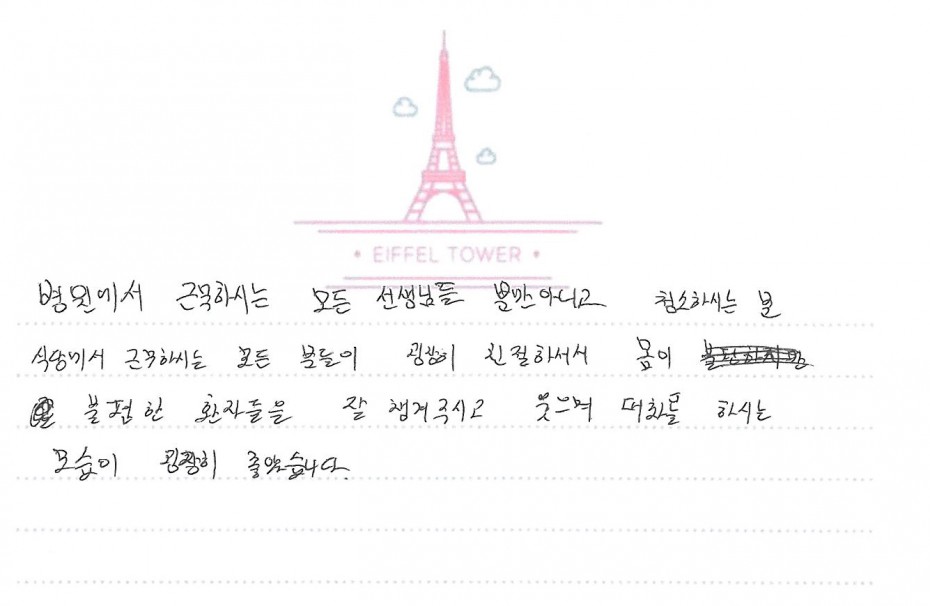 • EIFFEL TOWER •
병원에서 근무하시는 모든 선생님들 뿐만아니고 청소하시는 분
식당에서 근무하시는 모든 분들이 굉장히 친절하셔서 몸이
불편한 환자들을 잘 챙겨주시고 웃으며 대화를 하시는
모습이 굉장히 좋았습니다.